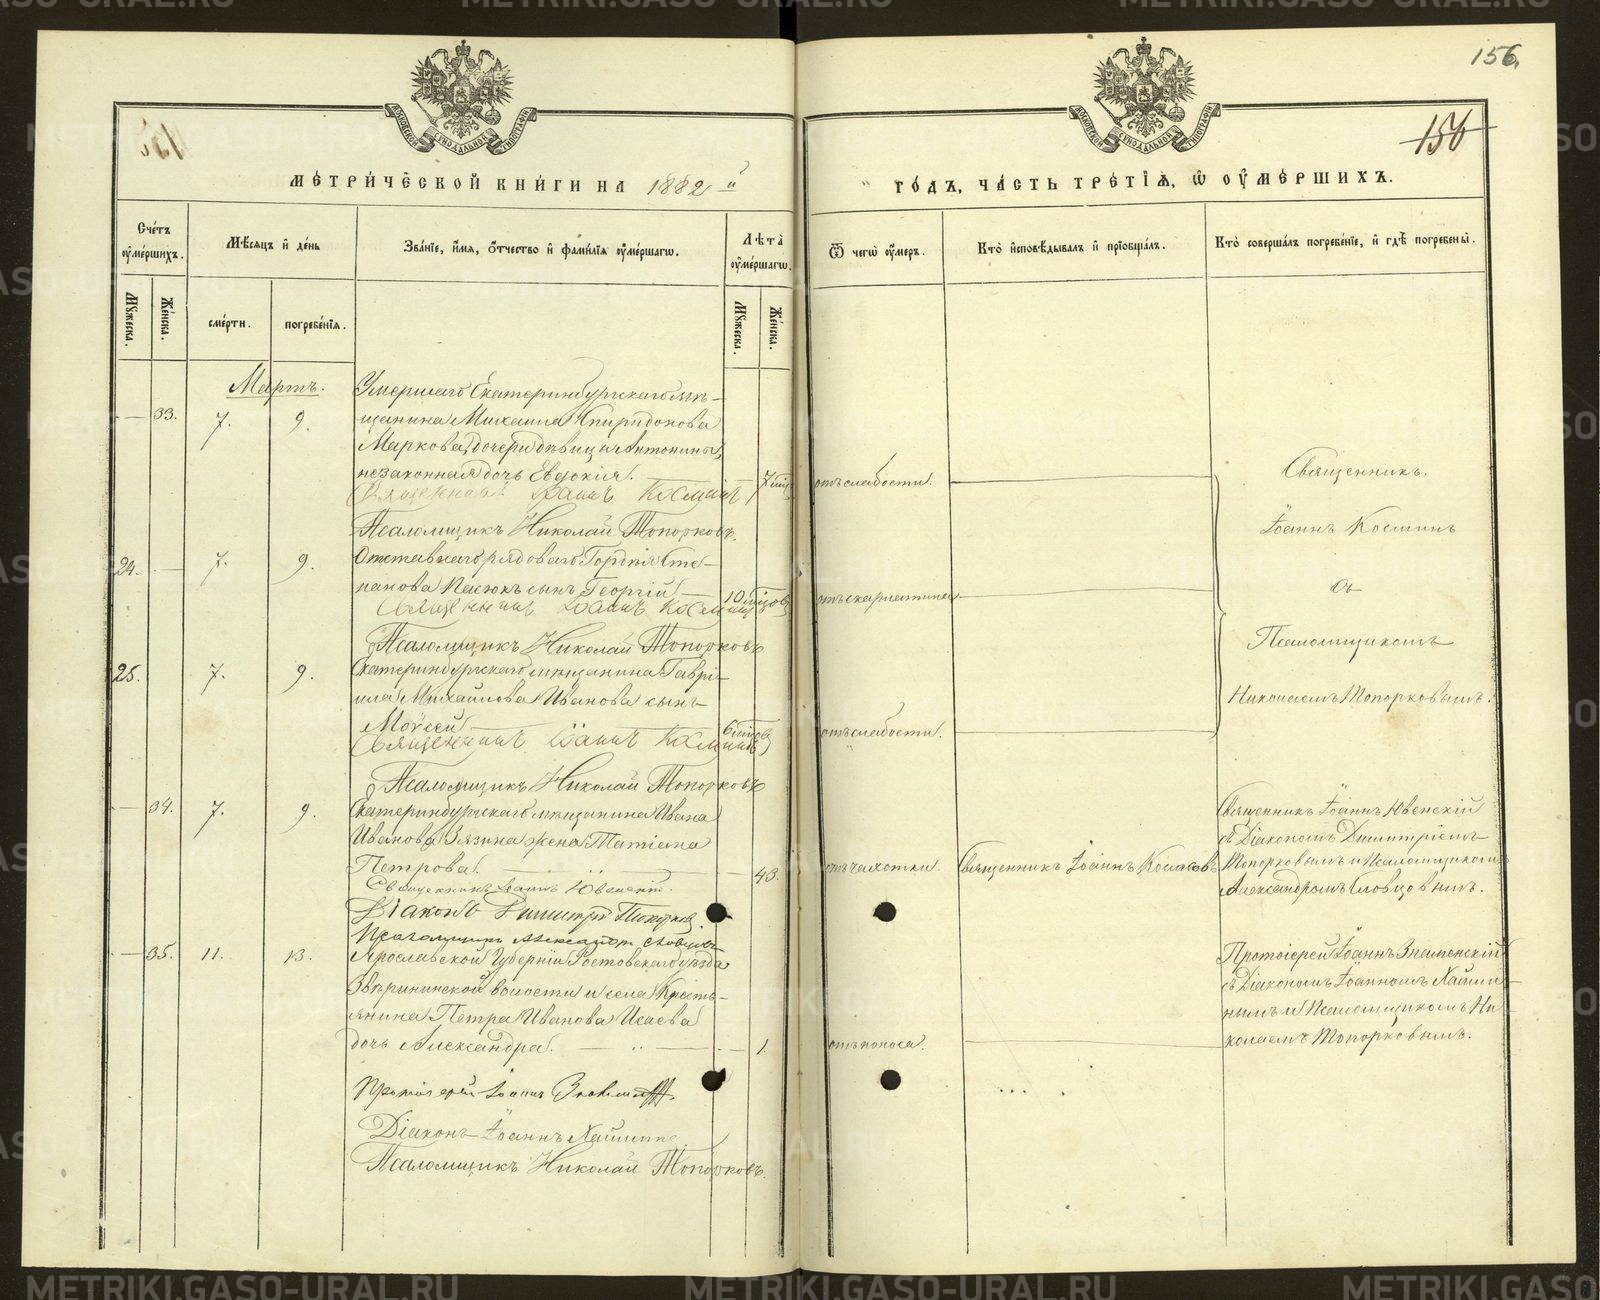 156.
156
МОСКОВСКОЙ СѴНОДАЛЬНОЙ ТИПОГРАФІИ
МОСКОВСКОЙ СѴНОДАЛЬНОЙ ТИПОГРАФІИ
МЕТРИЧЕСКОЙ КНИГИ НА 1882й
ГОДЪ, ЧАСТЬ ТРЕТІѦ, Ѡ ОУМЕРШИХЪ.
Счетъ оумершихъ.
Мѣсяцъ и день
Званіе, имя, отчество и фамилія оумершагѡ.
Лѣта оумершагѡ.
Ѿ чегѡ оумеръ.
Кто исповѣдывалъ и пріобщалъ.
Кто совершалъ погребеніе, и гдѣ погребены.
Мужеска. Женска.
смерти. погребенія.
Мужеска. Женска.
Мартъ.
— 33. 7. 9.
Умершаго Екатеринбургскаго мѣ-
щанина Михаила Спиридонова
Маркова, дочери дѣвицы Антонины,
незаконная дочь Евдокія. 7 мѣс.
отъ слабости.
Священникъ Іоаннъ Косминъ
Псаломщикъ Николай Топорковъ.
24. — 7. 9.
Отставнаго рядоваго Гордія Сте-
панова Пасюкъ сынъ Георгій 10 мѣсяцовъ
отъ скарлатины
Священникъ Іоаннъ Косминъ
Псаломщикъ Николай Топорковъ
25. 7. 9.
Екатеринбургскаго мѣщанина Гаврі-
ила Михайлова Иванова сынъ
Моѵсей 6 мѣсяцовъ
отъ слабости.
Священникъ Іоаннъ Косминъ
Псаломщикъ Николай Топорковъ
Священникъ.
Іоаннъ Косминъ
съ
Псаломщикомъ
Николаемъ Топорковымъ.
— 34. 7. 9.
Екатеринбургскаго мѣщанина Ивана
Иванова Зязина жена Татіана
Петрова. 43.
отъ чахотки. Священникъ Іоаннъ
Священникъ Іоаннъ
Діаконъ Димитрій Топорковъ
Псаломщикъ Александръ Словцовъ
Священникъ Іоаннъ
съ Діакономъ Димитріемъ
Топорковымъ и Псаломщикомъ
Александромъ Словцовымъ.
— 35. 11. 13.
Ярославской Губерніи Ростовскаго уѣзда
Звѣрининской волости и села Кресть-
янина Петра Иванова Исаева
дочь Александра. 1.
отъ поноса.
Протоіерей Іоаннъ Знаменскій
Діаконъ Іоаннъ
Псаломщикъ Николай Топорковъ.
Протоіерей Іоаннъ Знаменскій
съ Діакономъ Іоанномъ
и Псаломщикомъ Ни-
колаемъ Топорковымъ.
METRIKI.GASO-URAL.RU